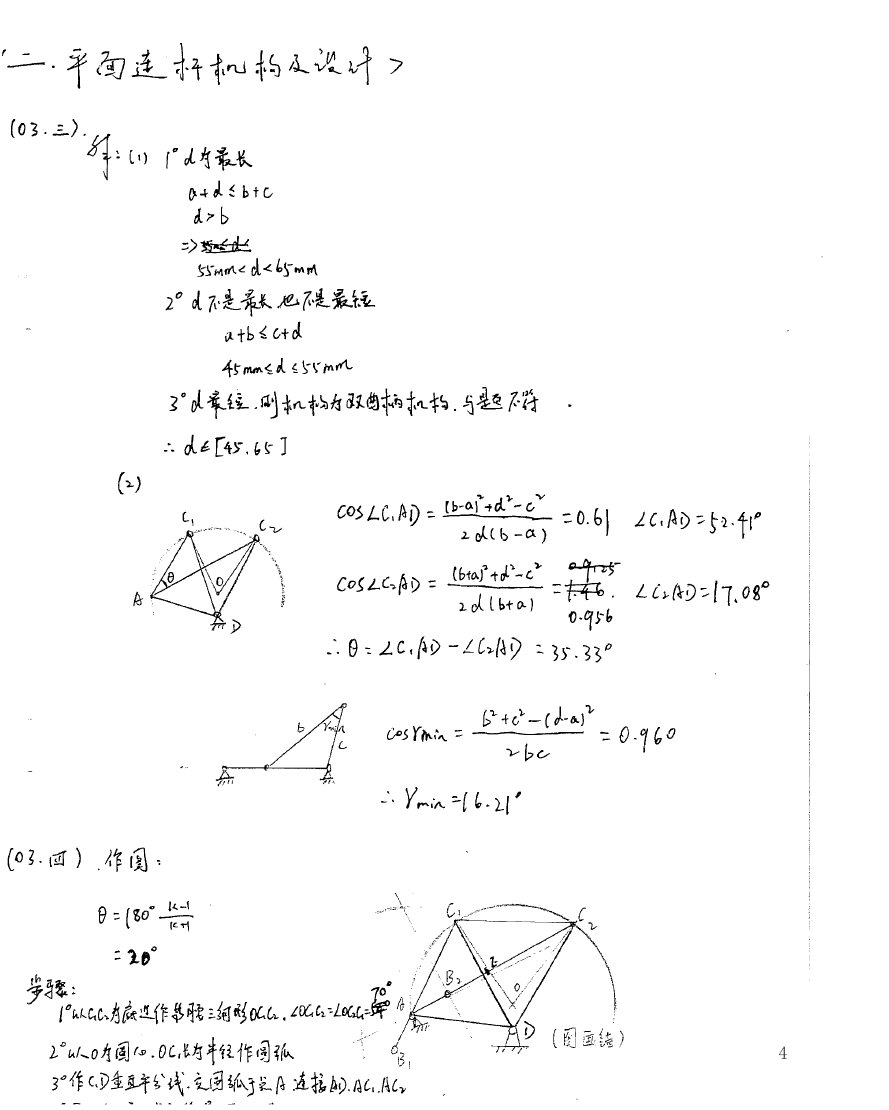 二. 平面连杆机构及设计 >
(03.三).
解: (1) 1° d为最长
a+d≤b+c
d>b
=>
55mm<d<65mm
2° d不是最长也不是最短
a+b≤c+d
45mm≤d≤55mm
3° d最短, 则机构为双曲柄机构, 与题不符.
∴ d∈[45,65]
(2)
C₁ C₂ θ O A D
cos∠C₁AD = ((b-a)²+d²-c²)/(2d(b-a)) = 0.61 ∠C₁AD=52.41°
cos∠C₂AD = ((b+a)²+d²-c²)/(2d(b+a)) = 0.956 ∠C₂AD=17.08°
∴ θ=∠C₁AD-∠C₂AD=35.33°
b γmin c
cosγmin = (b²+c²-(d-a)²)/(2bc) = 0.960
∴ γmin=16.21°
(03.四) 作图:
θ=180° (K-1)/(K+1)
=20°
C₁ C₂ E B₂ O A D B₁
(图画错)
步骤:
1° 以C₁C₂为底边作等腰三角形OC₁C₂, ∠OC₁C₂=∠OC₂C₁=70°
2° 以O为圆心, OC₁长为半径作圆弧
3° 作C₁D垂直平分线, 交圆弧于点A 连接AD, AC₁, AC₂
4